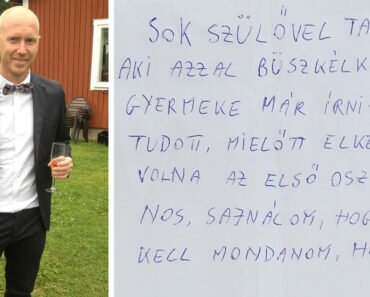 SOK SZÜLŐVEL TA
AKI AZZAL BÜSZKÉLK
GYERMEKE MÁR ÍRNI-
TUDOTT, MIELŐTT ELKE
VOLNA AZ ELSŐ OSZ
NOS, SAJNÁLOM, HOG
KELL MONDANOM, HO